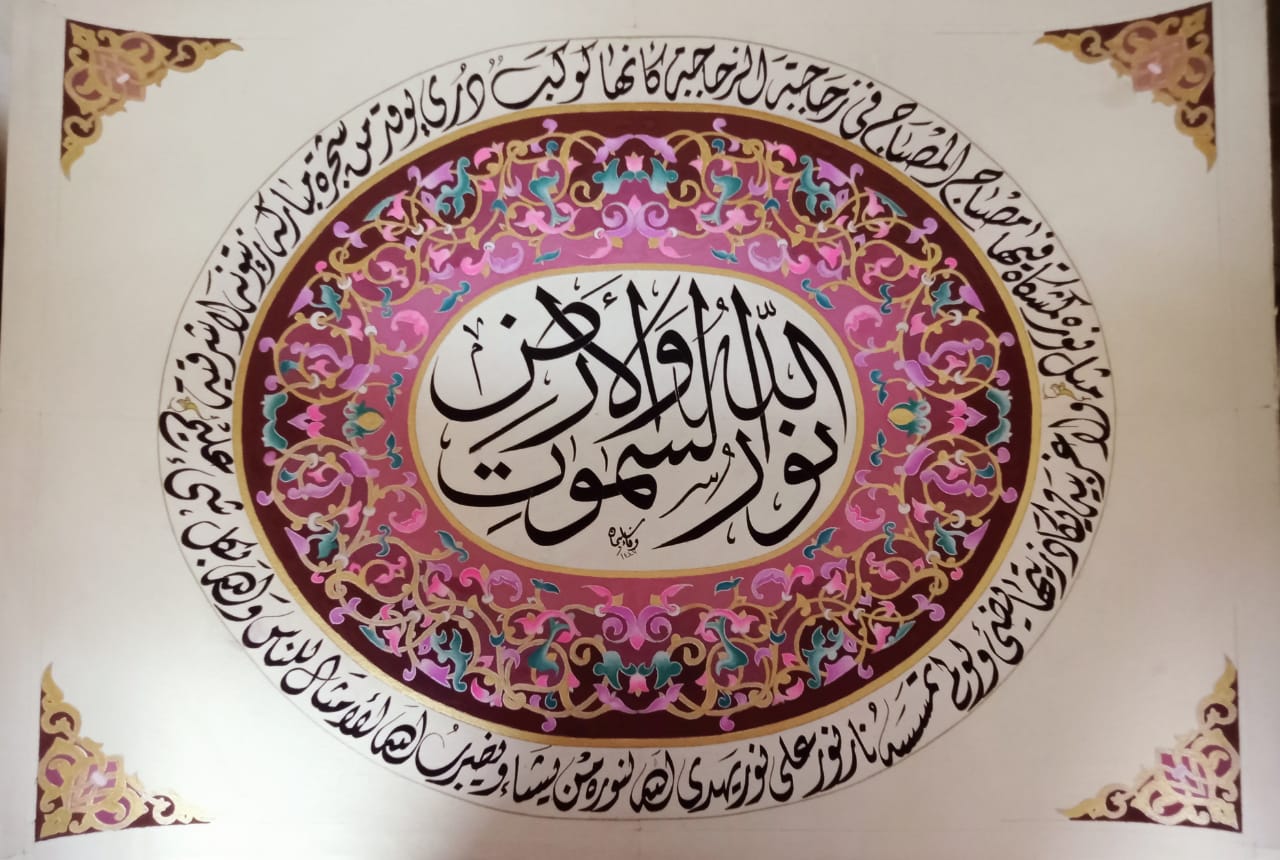 الله نور السموتِ والأرضِ
مثل نوره كمشكاة فيها مصباح المصباح في زجاجة الزجاجة كانها كوكب دُري يوقد من شجرة مباركة زيتونة لا شرقية
ولا غربية يكاد زيتها يضيئ ولو لم تمسسه نار نور على نور يهدى الله لنوره من يشاء ويضرب الله الأمثال للناس والله بكل شيء عليم